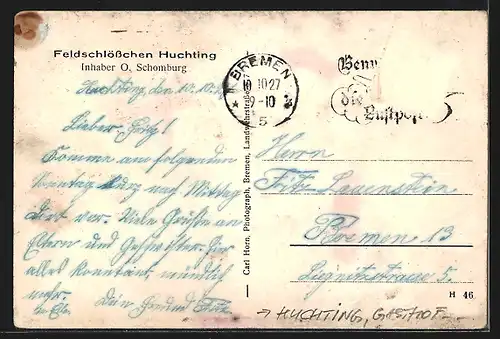 Feldschlößchen Huchting
Inhaber O. Schomburg
Huchting, den 10.10.27
Lieber Fritz!
Komme am folgenden
Sonntag kurz nach Mittag
Dort vor. Viele Grüße an
Eltern und Geschwister. Hier
alles konstant, mündlich
mehr.
Dein Freund Fritz
Carl Horn, Photograph, Bremen, Landwehrstraße
BREMEN
10.10.27
9-10
* 5 *
Benu
die
Luftpost
Herrn
Fritz Lauenstein
Bremen 13
Liegnitzstrasse 5.
H 46
→ HUCHTING, GASTHOF